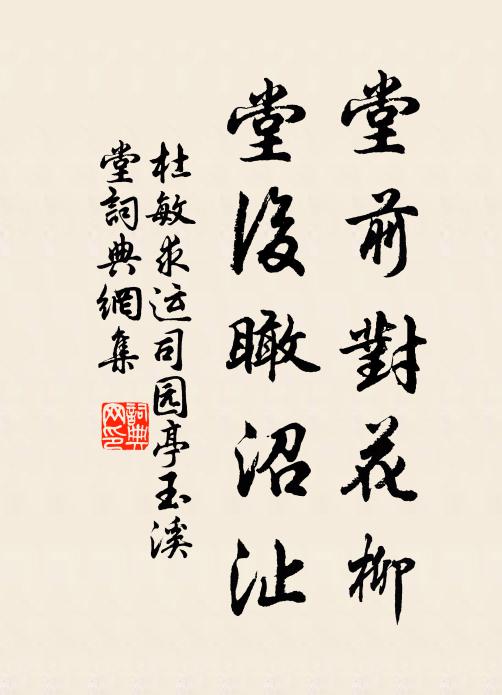 堂前對花柳
堂後瞰沼沚
杜敏求运司园亭玉溪
堂詞典網集
詞典網印